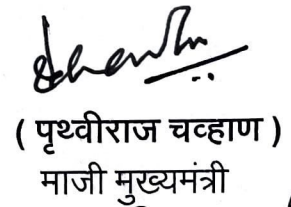 ( पृथ्वीराज चव्हाण )
माजी मुख्यमंत्री